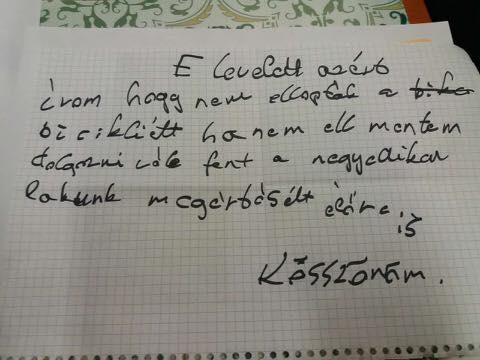 E levelett azért
írom hogy nem elloptak a bike
bicikliétt hanem ell mentem
dolgozni vele fent a negyediken
lakunk megértésélt előre is
Kősszönöm.